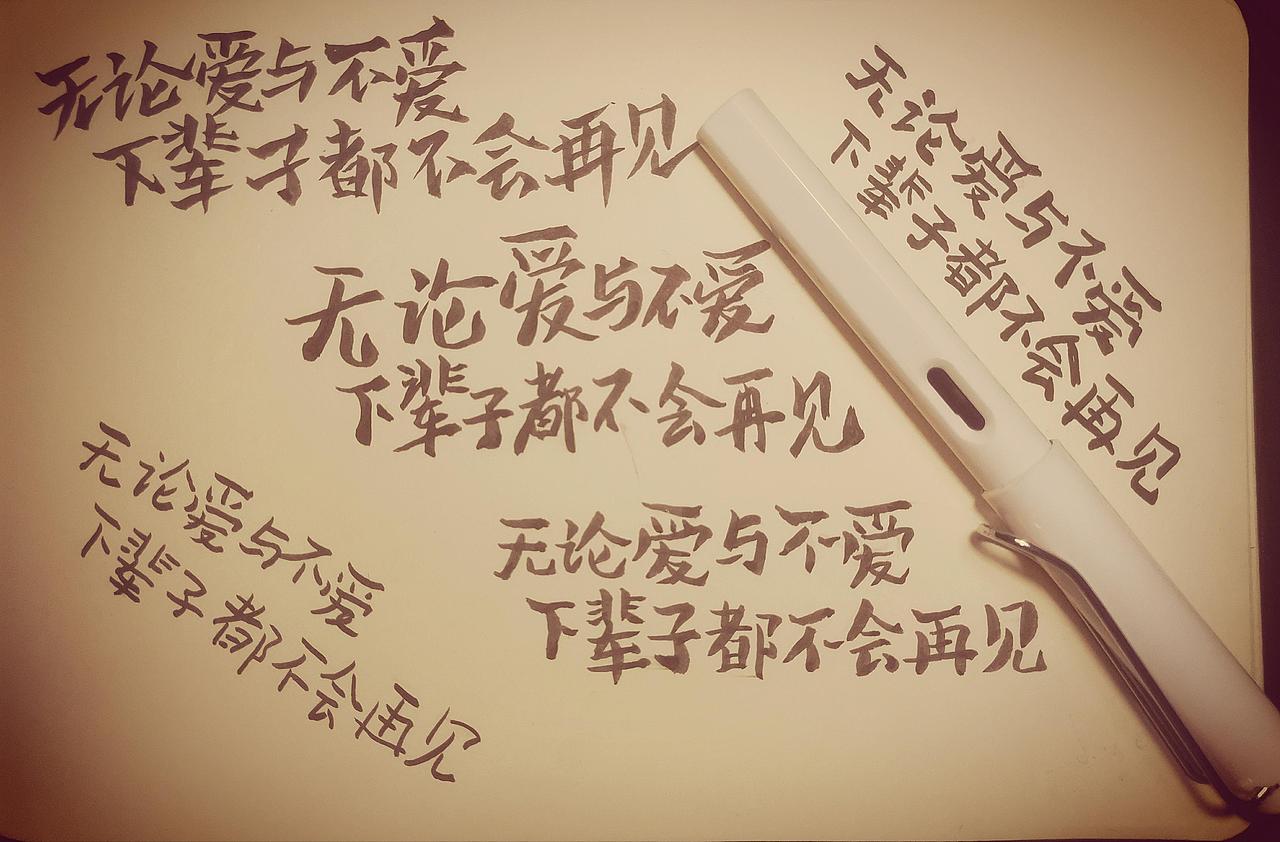 无论爱与不爱
下辈子都不会再见
无论爱与不爱
下辈子都不会再见
无论爱与不爱
下辈子都不会再见
无论爱与不爱
下辈子都不会再见
无论爱与不爱
下辈子都不会再见